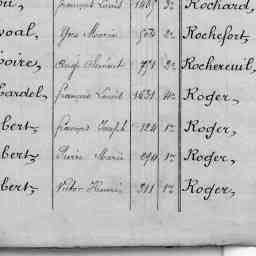 François Louis 1405 3e Rochard,
Yves Marie 2e Rochefort,
oire, 2e Rochereuil,
ardel, François Louis 1431 4e Roger,
bert, François Joseph 124 1e Roger,
bert, Pierre Marie 1e Roger,
bert, Victor Henri 311 1e Roger,